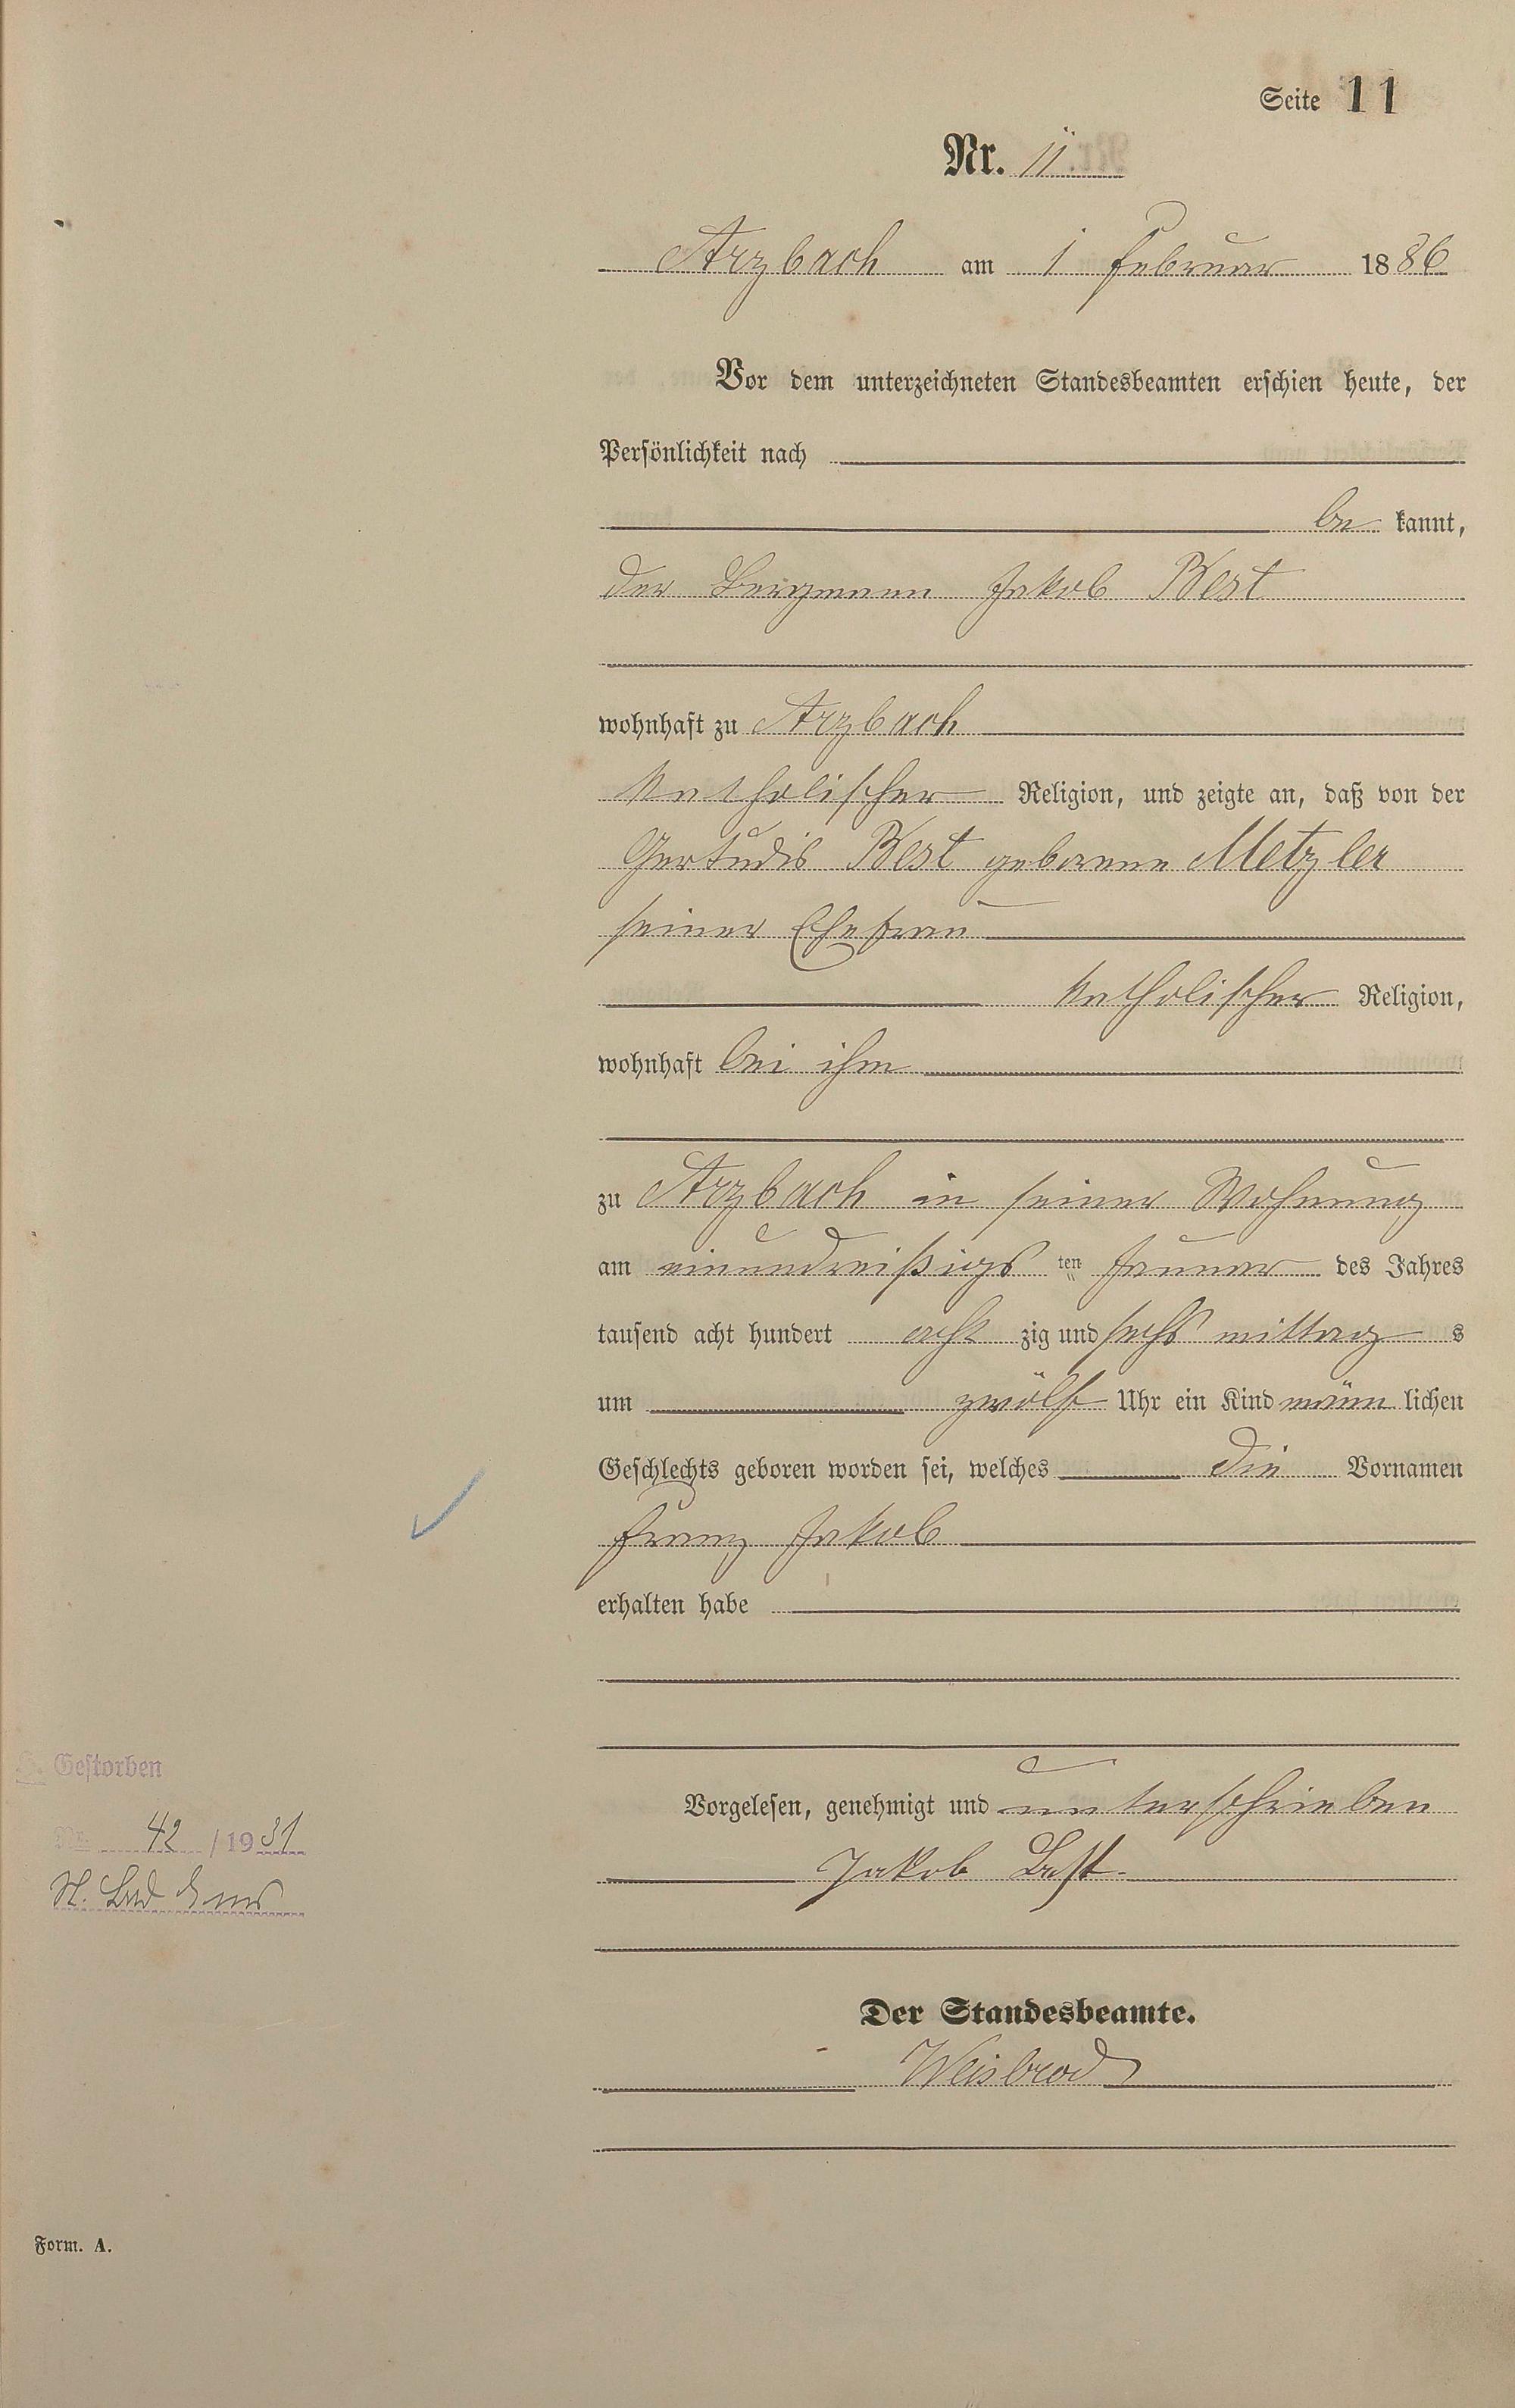 Seite 11
Nr. 11
Arzbach am 1 Februar 1886
Vor dem unterzeichneten Standesbeamten erschien heute, der
Persönlichkeit nach
be kannt,
der Bergmann Jakob Best
wohnhaft zu Arzbach
katholischer Religion, und zeigte an, daß von der
Gertudis Best geborene Metzler
seiner Ehefrau
katholischer Religion,
wohnhaft bei ihm
zu Arzbach in seiner Wohnung
am einundreißigs ten Januar des Jahres
tausend acht hundert acht zig und sechs mittag s
um zwölf Uhr ein Kind männ lichen
Geschlechts geboren worden sei, welches die Vornamen
Franz Jakob
erhalten habe
Vorgelesen, genehmigt und unterschrieben
Jakob Best.
Der Standesbeamte.
Weisbrod
Gestorben
Nr. 42 / 1931
St. Bad Ems
Form. A.